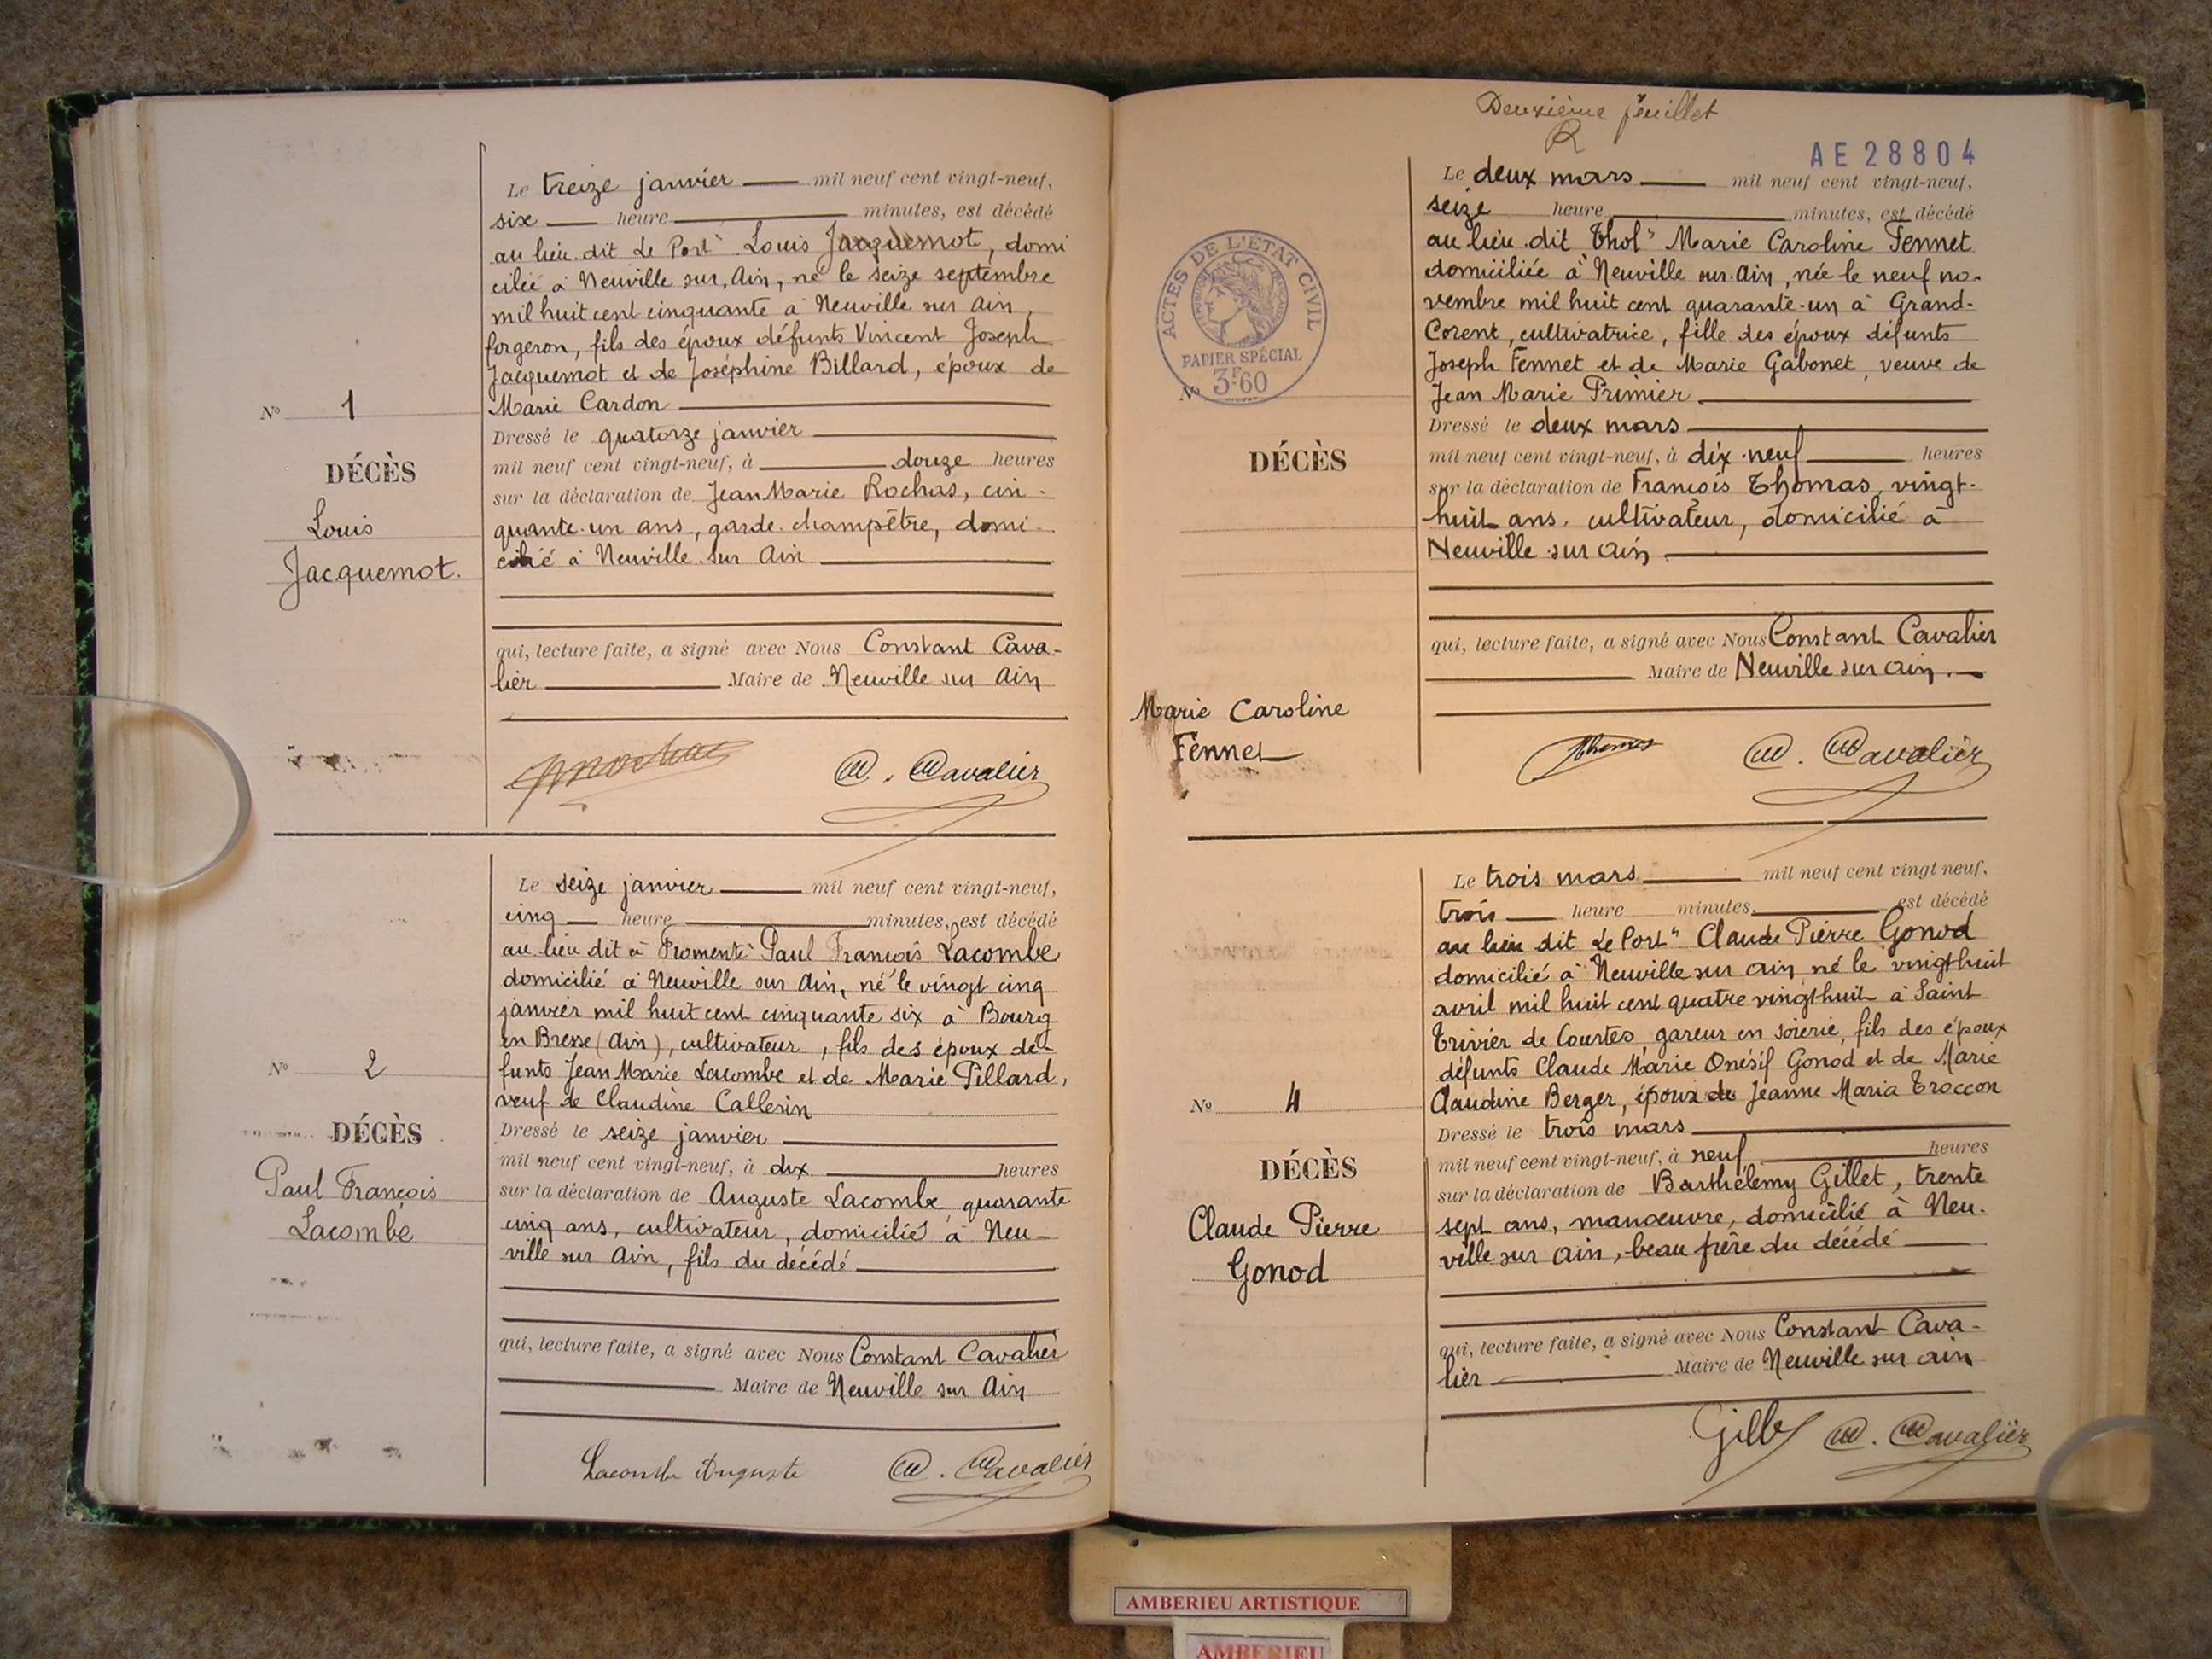 Le treize janvier mil neuf cent vingt-neuf,
six heure minutes, est décédé
au lieu dit Le Port" Louis Jacquemot, domi
cilié à Neuville sur Ain, né le seize septembre
mil huit cent cinquante à Neuville sur Ain,
forgeron, fils des époux défunts Vincent Joseph
Jacquemot et de Joséphine Billard, époux de
Marie Cardon
Dressé le quatorze janvier
mil neuf cent vingt-neuf, à douze heures
sur la déclaration de Jean Marie Rochas, cin-
quante-un ans, garde-champêtre, domi-
cilié à Neuville sur Ain
qui, lecture faite, a signé avec Nous Constant Cava-
lier Maire de Neuville sur Ain
C. Cavalier
No 1
DÉCÈS
Louis
Jacquemot.
Le seize janvier mil neuf cent vingt-neuf,
cinq heure minutes, est décédé
au lieu dit à Fromente" Paul François Lacombe
domicilié à Neuville sur Ain, né le vingt cinq
janvier mil huit cent cinquante six à Bourg
en Bresse (Ain), cultivateur, fils des époux dé-
funts Jean Marie Lacombe et de Marie Pillard,
veuf de Claudine Callerin
Dressé le seize janvier
mil neuf cent vingt-neuf, à dix heures
sur la déclaration de Auguste Lacombe, quarante
cinq ans, cultivateur, domicilié à Neu-
ville sur Ain, fils du décédé
qui, lecture faite, a signé avec Nous Constant Cavalier
Maire de Neuville sur Ain
Lacombe Auguste C. Cavalier
No 2
DÉCÈS
Paul François
Lacombe
Deuxième feuillet
AE 28804
Le deux mars mil neuf cent vingt-neuf,
seize heure minutes, est décédé
au lieu dit Thol" Marie Caroline Fennet
domiciliée à Neuville sur Ain, née le neuf no-
vembre mil huit cent quarante-un à Grand-
Corent, cultivatrice, fille des époux défunts
Joseph Fennet et de Marie Gabonet, veuve de
Jean Marie Primier
Dressé le deux mars
mil neuf cent vingt-neuf, à dix-neuf heures
sur la déclaration de François Thomas, vingt-
huit ans, cultivateur, domicilié à
Neuville sur Ain
qui, lecture faite, a signé avec Nous Constant Cavalier
Maire de Neuville sur Ain.
Thomas C. Cavalier
ACTES DE L'ETAT CIVIL
PAPIER SPÉCIAL
3F60
No
DÉCÈS
Marie Caroline
Fennet
Le trois mars mil neuf cent vingt neuf,
trois heure minutes, est décédé
au lieu dit Le Port" Claude Pierre Gonod
domicilié à Neuville sur Ain, né le vingt huit
avril mil huit cent quatre vingt huit à Saint
Trivier de Courtes, gareur en soierie, fils des époux
défunts Claude Marie Onésif Gonod et de Marie
Claudine Berger, époux de Jeanne Maria Troccon
Dressé le trois mars
mil neuf cent vingt-neuf, à neuf heures
sur la déclaration de Barthélemy Gillet, trente
sept ans, manœuvre, domicilié à Neu-
ville sur Ain, beau frère du décédé
qui, lecture faite, a signé avec Nous Constant Cava-
lier Maire de Neuville sur Ain
Gillet C. Cavalier
No 4
DÉCÈS
Claude Pierre
Gonod
AMBERIEU ARTISTIQUE
AMBERIEU